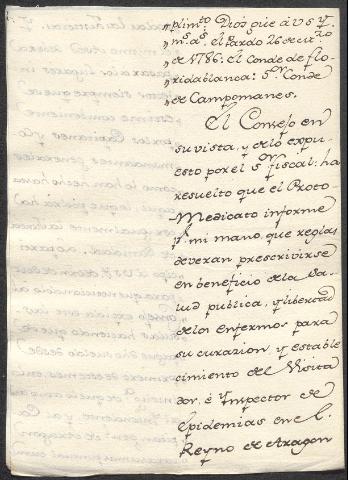 plim.to Dios gûe à V S. y
m.s a.s el Pardo 26 de
de 1786. El Conde de flo-
ridablanca: S.or Conde
de Campomanes.
El Consejo en
su vista, y delo expu-
esto por el S.r fiscal: ha
resuelto que el Proto-
Medicato informe
p.r mi mano, que reglas
deveran prescrivirse
en beneficio dela Sa-
lud publica, y livertad
delos enfermos para
su curazion, y estable
cimiento del Visita
dor, é Ynspector de
Epidemias en el
Reyno de Aragon